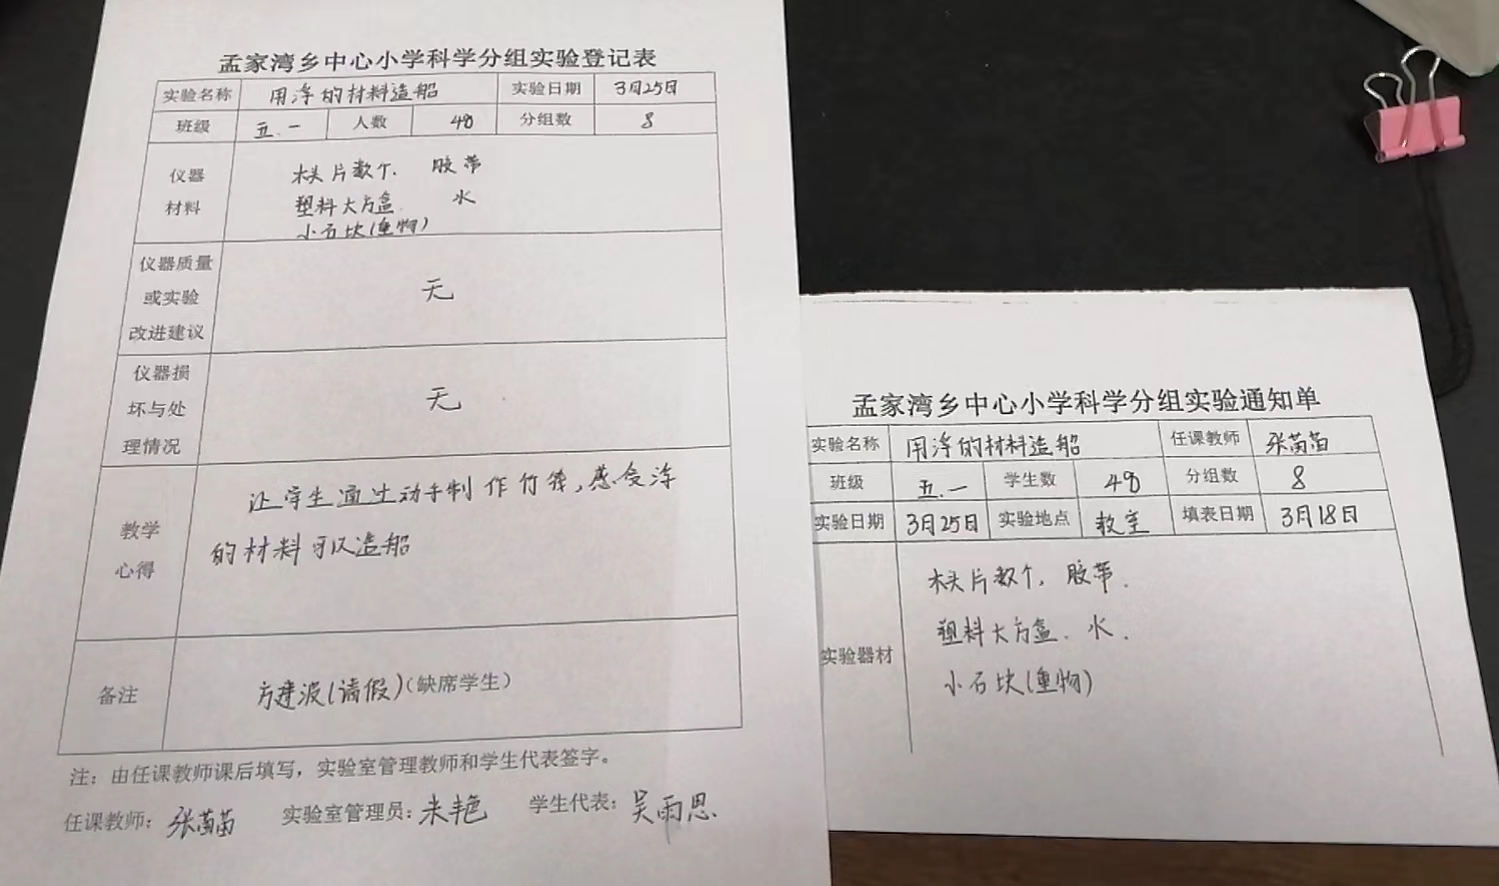 孟家湾乡中心小学科学分组实验登记表
实验名称 用浮的材料造船 实验日期 3月25日
班级 五.一 人数 48 分组数 8
仪器材料
木头片数个. 胶带
塑料大方盒. 水
小石块(重物)
仪器质量或实验改进建议 无
仪器损坏与处理情况 无
教学心得
让学生通过动手制作竹筏,感受浮
的材料可以造船
备注 方建波(请假)(缺席学生)
注：由任课教师课后填写，实验室管理教师和学生代表签字。
任课教师: 张茵茵 实验室管理员: 朱艳 学生代表: 吴雨思.
孟家湾乡中心小学科学分组实验通知单
实验名称 用浮的材料造船 任课教师 张茵茵
班级 五.一 学生数 48 分组数 8
实验日期 3月25日 实验地点 教室 填表日期 3月18日
实验器材
木头片数个, 胶带.
塑料大方盒. 水.
小石块(重物)